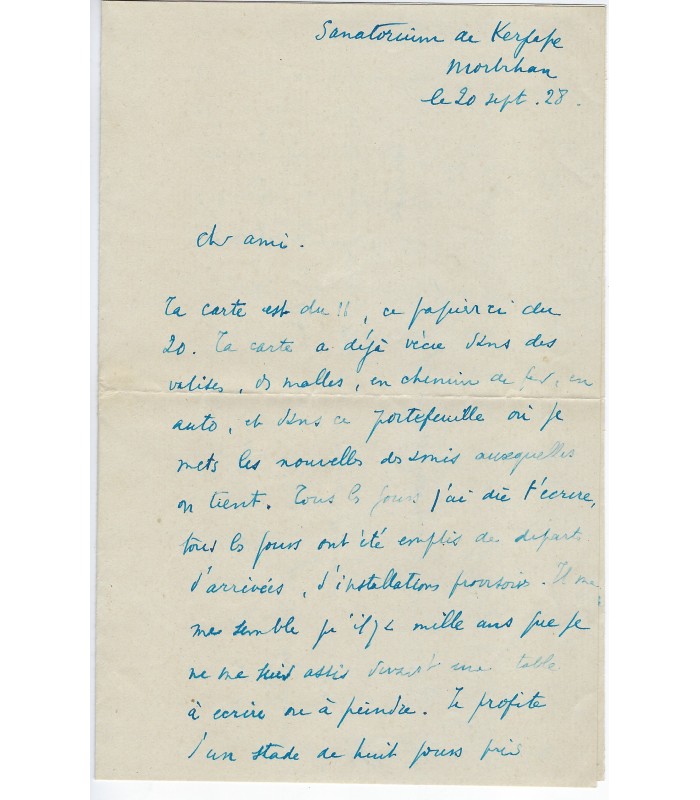 Sanatorium de Kerpape
Morbihan
le 20 sept. 28.
Cher ami.
Ta carte est du 11, ce papier ci du
20. Ta carte a déjà vécu dans des
valises, des malles, en chemin de fer, en
auto, et dans ce portefeuille où je
mets les nouvelles des amis auxquelles
on tient. Tous les jours j'ai dû t'écrire,
tous les jours ont été emplis de départs
d'arrivées, d'installations provisoires. Il me
me semble qu'il y a mille ans que je
ne me suis assis devant une table
à écrire ou à peindre. Je profite
d'un stade de huit jours